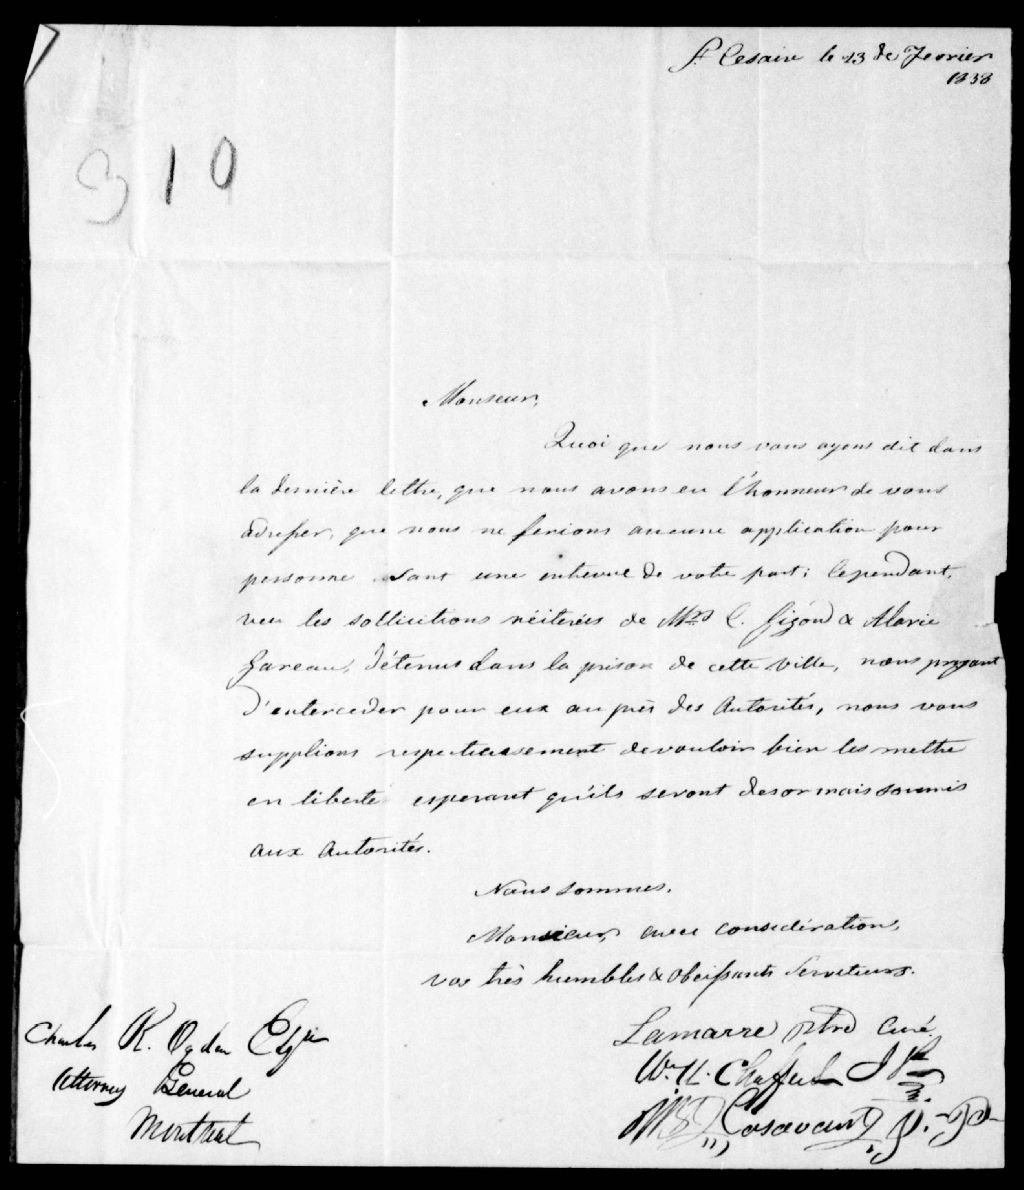 St. Cesaire le 13 de Fevrier
1838
310
Monseur,
Quoi que nous vous ayons dit dans
la dernière lettre, que nous avons eu l'honneur de vous
adresser, que nous ne ferions aucune application pour
personne sant une entrevue de votre part; Cependant,
veu les sollicitions réiterées de Mrs C. Gigon & Marie
Gareau, détenus dans la prison de cette ville, nous priant
d'enterceder pour eux au près des Autorités, nous vous
supplions respectueusement de vouloir bien les mettre
en liberté esperant qu'ils seront desormais soumis
aux Autorités.
Nous sommes,
Monsieur, avec consideration,
vos très humbles & obeissants Serviteurs.
Lamarre ptre Curé
Wm. U. Chaffers J P
Casavant J. P.
Charles R. Ogden Esqr
Attorney General
Montreal